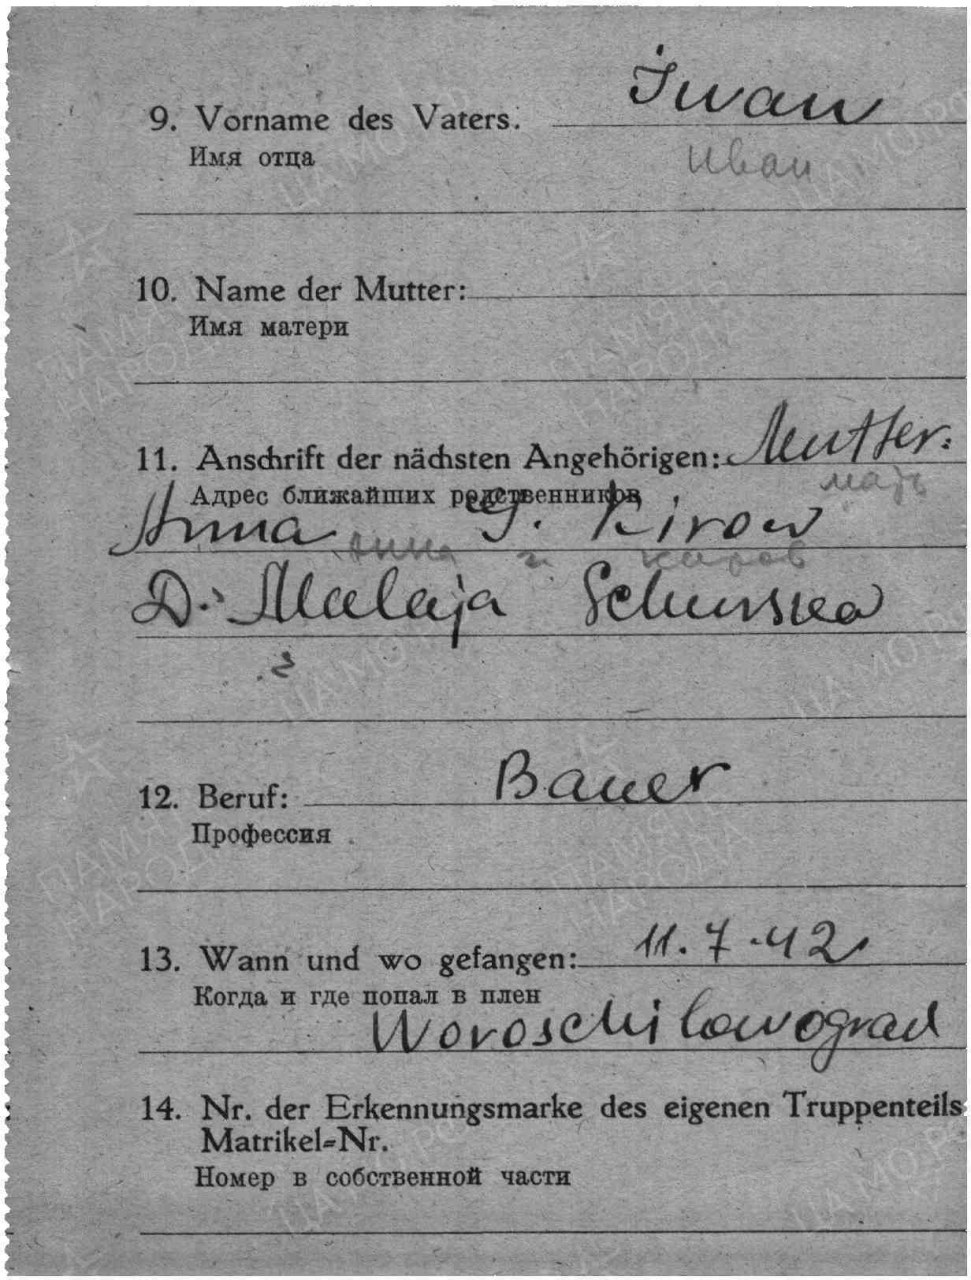 9. Vorname des Vaters. Iwan
Имя отца Иван
10. Name der Mutter:
Имя матери
11. Anschrift der nächsten Angehörigen: Mutter:
Адрес ближайших родственников мать
Anna G. Kirow
Анна г киров
D. Malaja
г
12. Beruf: Bauer
Профессия
13. Wann und wo gefangen: 11.7.42
Когда и где попал в плен
Woroschilowograd
14. Nr. der Erkennungsmarke des eigenen Truppenteils
Matrikel-Nr.
Номер в собственной части
ПАМЯТЬ НАРОДА
ЦАМО РФ